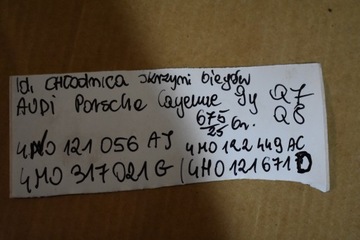 Id. CHŁODNICA skrzyni biegów
AUDI Porsche Cayenne 9y Q7 Q8
675/25 Gr.
4M0 121 056 AJ 4M0 122 449 AC
4M0 317 021 G (4M0 121 671 D